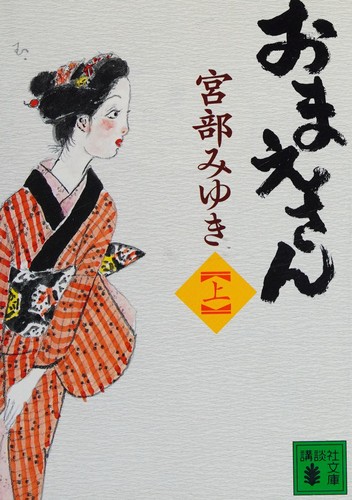 おまえさん
宮部みゆき
【上】
講談社文庫